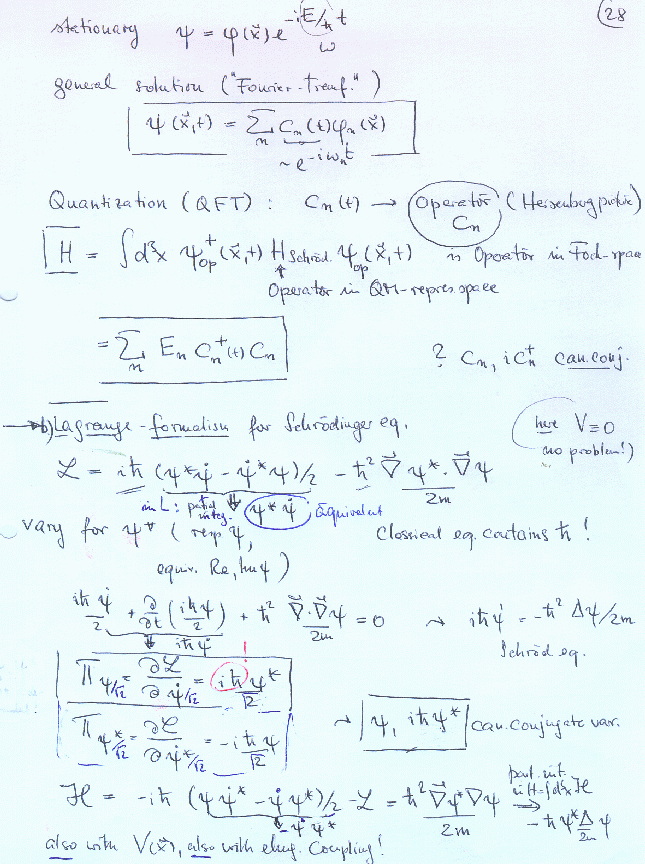 28
stationary ψ = φ(x⃗) e^{-iE/ħ t}
ω
general solution ("Fourier-Transf.")
ψ(x⃗,t) = Σ_n c_n(t) φ_n(x⃗)
~ e^{-iω_n t}
Quantization (QFT) : c_n(t) → Operator (Heisenberg picture)
c_n
H = ∫d³x ψ_op^+(x⃗,t) H_Schröd. ψ_op(x⃗,t) is Operator in Fock-space
Operator in QM-repres. space
= Σ_n E_n c_n^+(t) c_n ? c_n, i c_n^+ can. conj.
→ b) Lagrange-formalism for Schrödinger eq.
here V≡0
no problem!)
ℒ = iħ (ψ*ψ̇ - ψ̇*ψ)/2 - ħ² ∇⃗ψ*·∇⃗ψ / 2m
in L: partial integ. ⇓ ψ*ψ̇ ; equivalent
vary for ψ* (resp ψ, Classical eq. contains ħ !
equiv. Re, Im ψ)
iħψ̇/2 + ∂/∂t (iħψ/2) + ħ² ∇⃗·∇⃗ψ/2m = 0 ⇝ iħψ̇ = -ħ² Δψ/2m
iħψ̇ Schröd eq.
!
Π_{ψ/√2} = ∂ℒ/∂ψ̇/√2 = iħ ψ*/√2
Π_{ψ*/√2} = ∂ℒ/∂ψ̇*/√2 = -iħ ψ/√2 ⇝ ψ, iħψ* can. conjugate var.
ℋ = -iħ (ψψ̇* - ψ̇ψ*)/2 - ℒ = ħ² ∇⃗ψ*∇ψ / 2m → -ħ ψ* Δ/2m ψ
part. int. in H=∫d³x ℋ
-ψ̇ψ*
also with V(x⃗), also with elmg. Coupling!